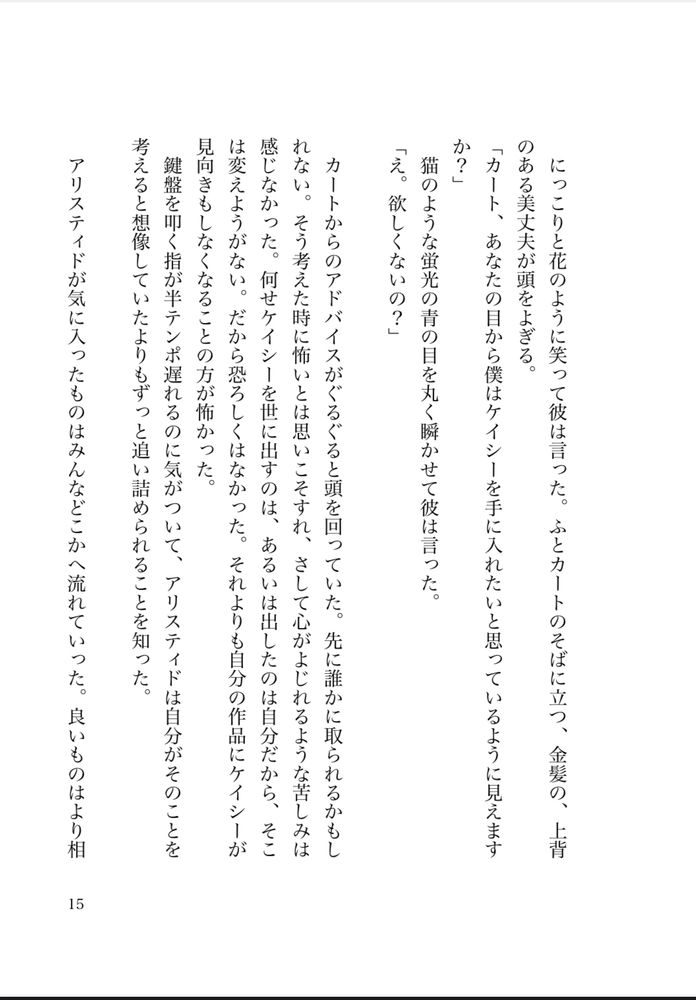 にっこりと花のように笑って彼は言った。ふとカートのそばに立つ、金髪の、上背
のある美丈夫が頭をよぎる。
「カート、あなたの目から僕はケイシーを手に入れたいと思っているように見えます
か？」
猫のような蛍光の青の目を丸く瞬かせて彼は言った。
「え。欲しくないの？」
カートからのアドバイスがぐるぐると頭を回っていた。先に誰かに取られるかもし
れない。そう考えた時に怖いとは思いこそすれ、さして心がよじれるような苦しみは
感じなかった。何せケイシーを世に出すのは、あるいは出したのは自分だから、そこ
は変えようがない。だから恐ろしくはなかった。それよりも自分の作品にケイシーが
見向きもしなくなることの方が怖かった。
鍵盤を叩く指が半テンポ遅れるのに気がついて、アリスティドは自分がそのことを
考えると想像していたよりもずっと追い詰められることを知った。
アリスティドが気に入ったものはみんなどこかへ流れていった。良いものはより相
15